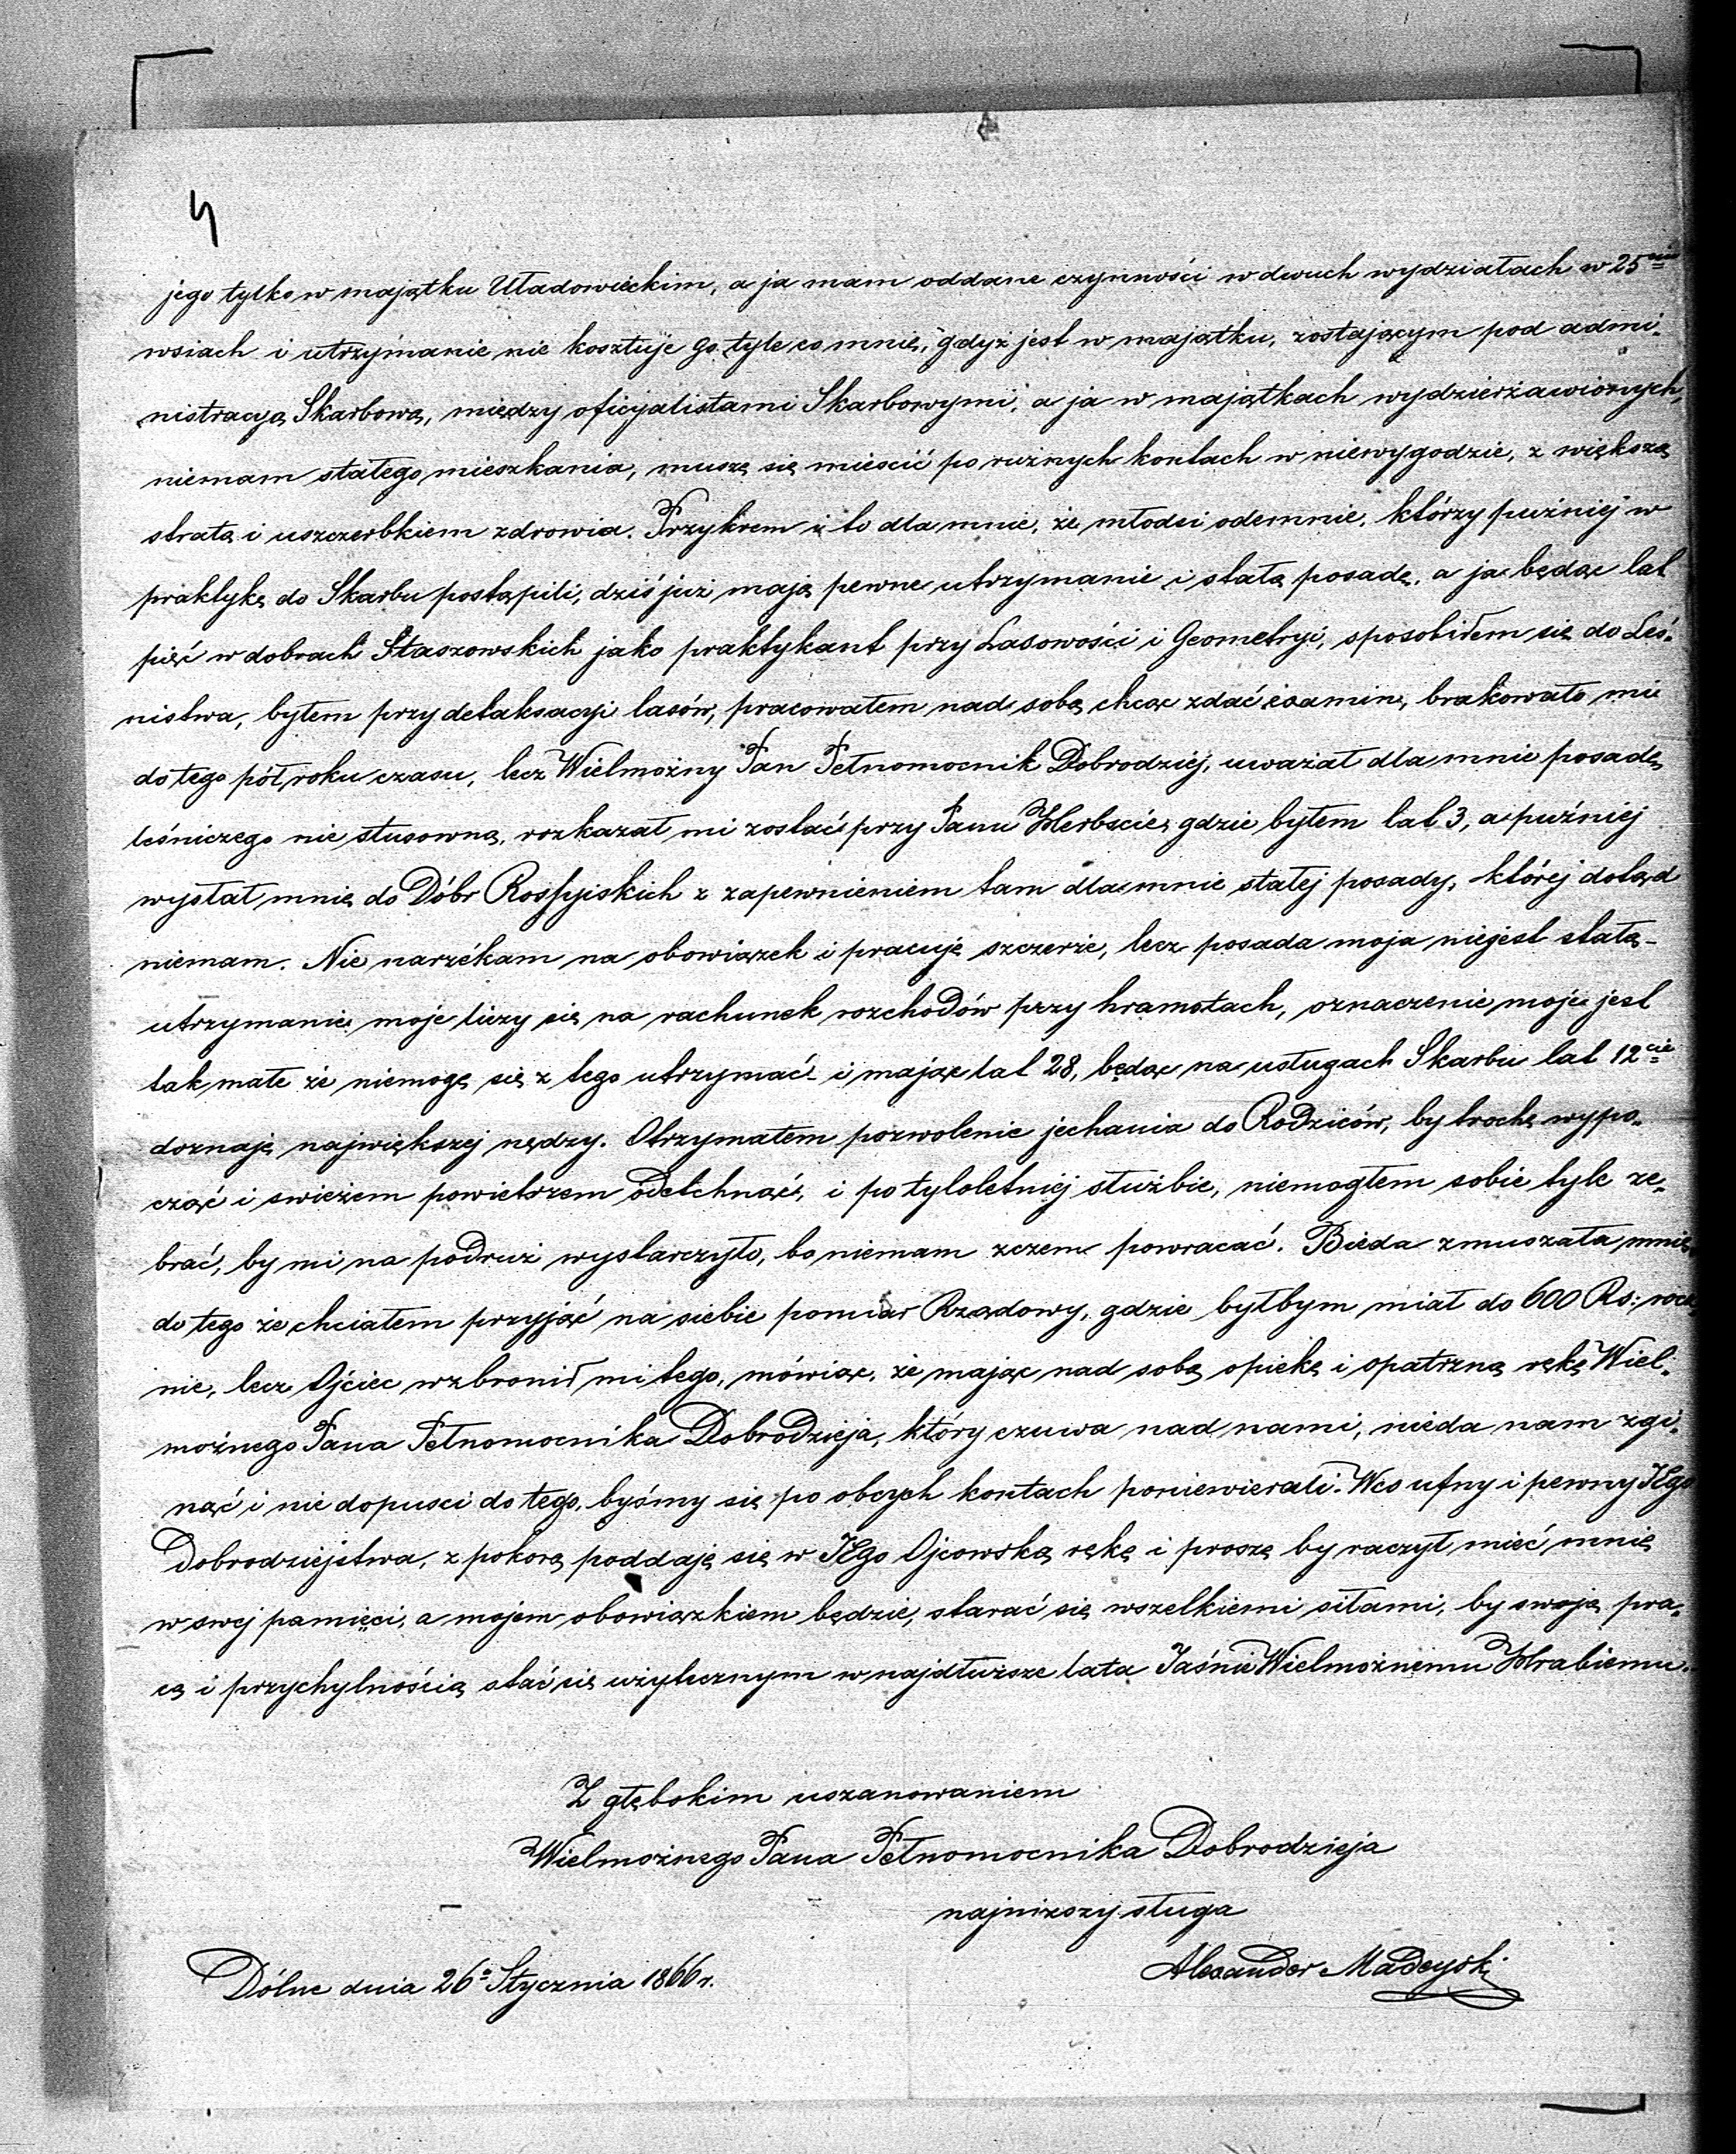 4
jego tylko w majątku Uładowieckim, a ja mam oddane czynności w dwuch wydziałach w 25
wsiach i utrzymanie nie kosztuje go tyle co mnie, gdyż jest w majątku, zostającym pod admi-
nistracyą Skarbową, między oficyalistami Skarbowymi, a ja w majątkach wydzierżawionych,
niemam stałego mieszkania, muszę się mieścić po rużnych kontach w niewygodzie, z większą
stratą i uszczerbkiem zdrowia. Przykrem i to dla mnie, że młodsi odemnie, którzy puźniej w
praktykę do Skarbu postąpili, dziś już mają pewne utrzymanie i stałą posadę, a ja będąc lat
pięć w dobrach Staszowskich jako praktykant przy Lasowości i Geometryi, sposobiłem się do Leś-
nistwa, byłem przy detaksacyi lasów, pracowałem nad sobą chcąc zdać examin, brakowało mi
do tego pół roku czasu, lecz Wielmożny Pan Pełnomocnik Dobrodziej, uważał dla mnie posadę
leśniczego nie stusowną, rozkazał mi zostać przy Panu Herbscie, gdzie byłem lat 3, a puźniej
wysłał mnie do Dóbr Rossyiskich z zapewnieniem tam dla mnie stałej posady, której dotąd
niemam. Nie narzékam na obowiązek i pracuję szczerze, lecz posada moja niejest stałą-
utrzymanie moje liczy się na rachunek rozchodów przy hramotach, oznaczenie moje jest
tak małe że niemogę się z tego utrzymać- i mając lat 28, będąc na usługach Skarbu lat 12cie
doznaję największej nędzy. Otrzymałem pozwolenie jechania do Rodziców, by trochę wypo-
cząć i swieżem powietrzem odetchnąć, i po tyloletniej służbie, niemogłem sobie tyle ze-
brać, by mi na podruż wystarczyło, bo niemam zczem powracać. Bieda zmuszała mnie
do tego że chciałem przyjąć na siebie pomiar Rządowy, gdzie byłbym miał do 600 Rs: rocz
nie, lecz Ojciec wzbronił mi tego, mówiąc, że mając nad sobą opiekę i opatrzną rękę Wiel-
możnego Pana Pełnomocnika Dobrodzieja, który czuwa nad nami, nieda nam zgi-
nąć i nie dopusci do tego, byśmy się po obcych kontach poniewierali. Wco ufny i pewny JEgo
Dobrodziejstwa, z pokorą poddaję się w JEgo Ojcowską rękę i proszę by raczył mieć mnie
w swej pamięci, a mojem obowiązkiem będzie, starać się wszelkiemi siłami, by swoją pra-
cą i przychylnością stać się użytecznym w najdłuższe lata Jaśnie Wielmożnemu Hrabiemu.
Z głębokim uszanowaniem
Wielmożnego Pana Pełnomocnika Dobrodzieja
najniższy sługa
Alexander Madeyski
Dólne dnia 26° Stycznia 1866 r.